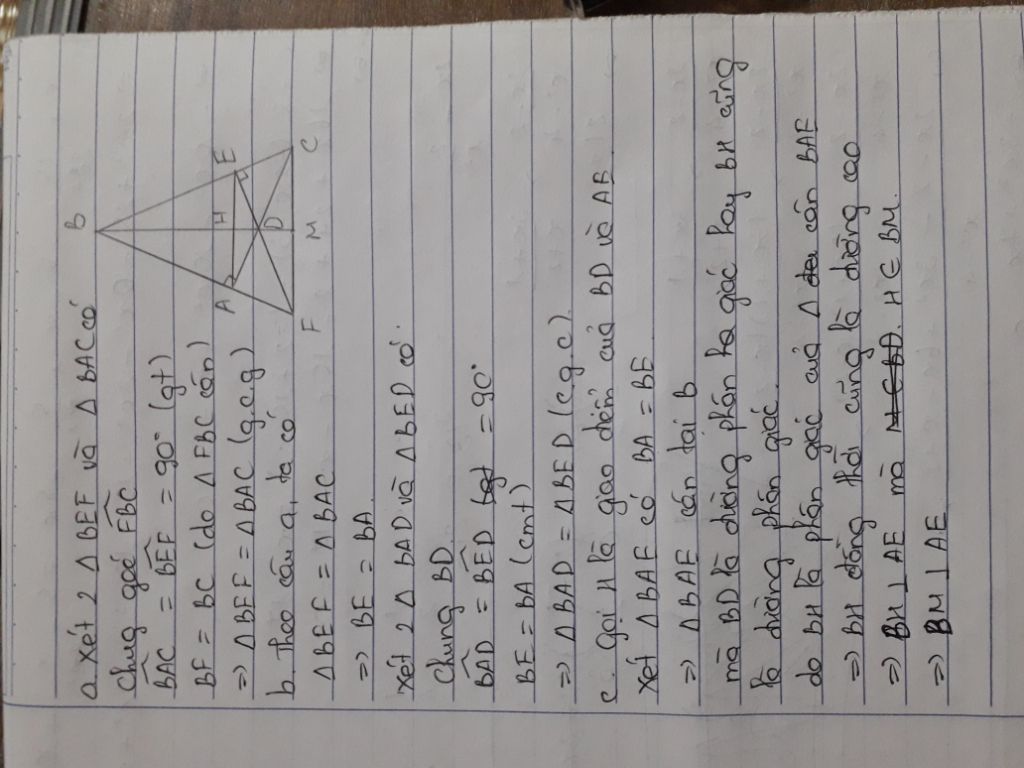 a. Xét 2 Δ BEF và Δ BAC có
Chung góc FBC
BAC = BEF = 90° (gt)
BF = BC (do Δ FBC cân)
=> Δ BEF = Δ BAC (g.c.g)
b. Theo câu a, ta có
Δ BEF = Δ BAC
=> BE = BA
Xét 2 Δ BAD và Δ BED có:
Chung BD
BAD = BED = 90°
BE = BA (cmt)
=> Δ BAD = Δ BED (c.g.c)
c. Gọi H là giao điểm của BD và AE
Xét Δ BAE có BA = BE
=> Δ BAE cân tại B
mà BD là đường phân ba góc hay BH cũng
là đường phân giác
do BH là phân giác của Δ cân BAE
=> BH đồng thời cũng là đường cao
=> BH ⊥ AE mà H ∈ BM.
=> BM ⊥ AE
B
A
H
E
D
F
M
C